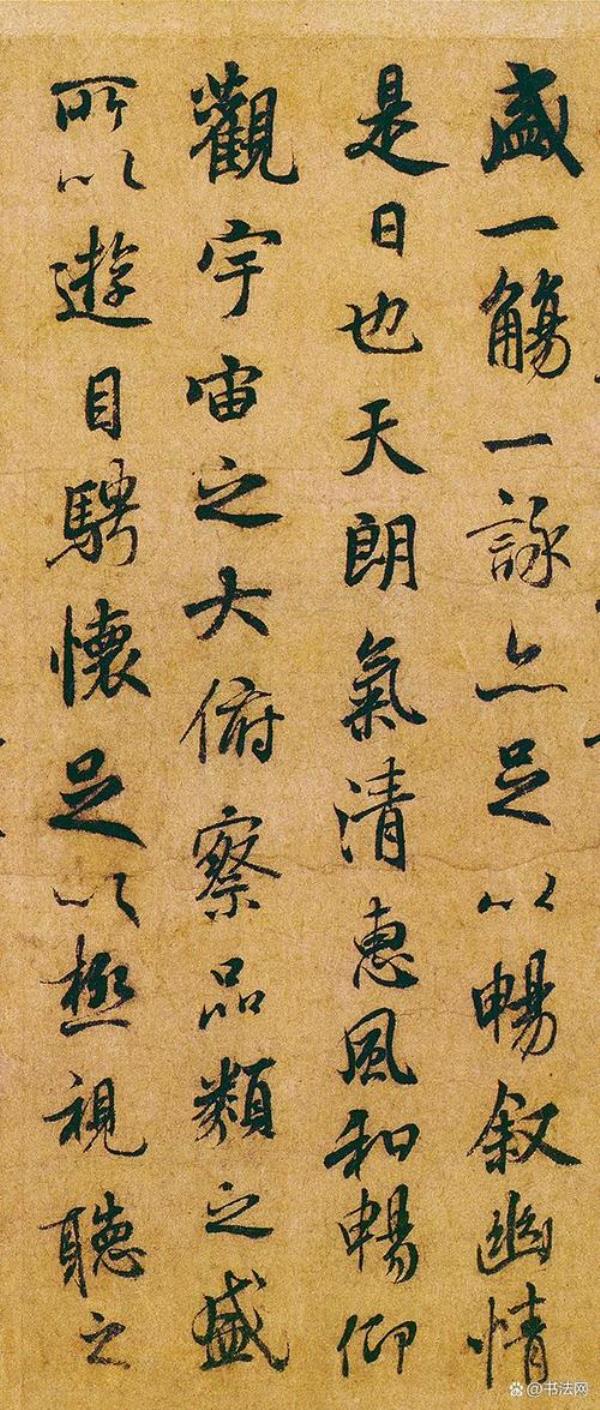 盛一觴一詠亦足以暢叙幽情
是日也天朗氣清惠風和暢仰
觀宇宙之大俯察品類之盛
所以遊目騁懷足以極視聽之
@书法网